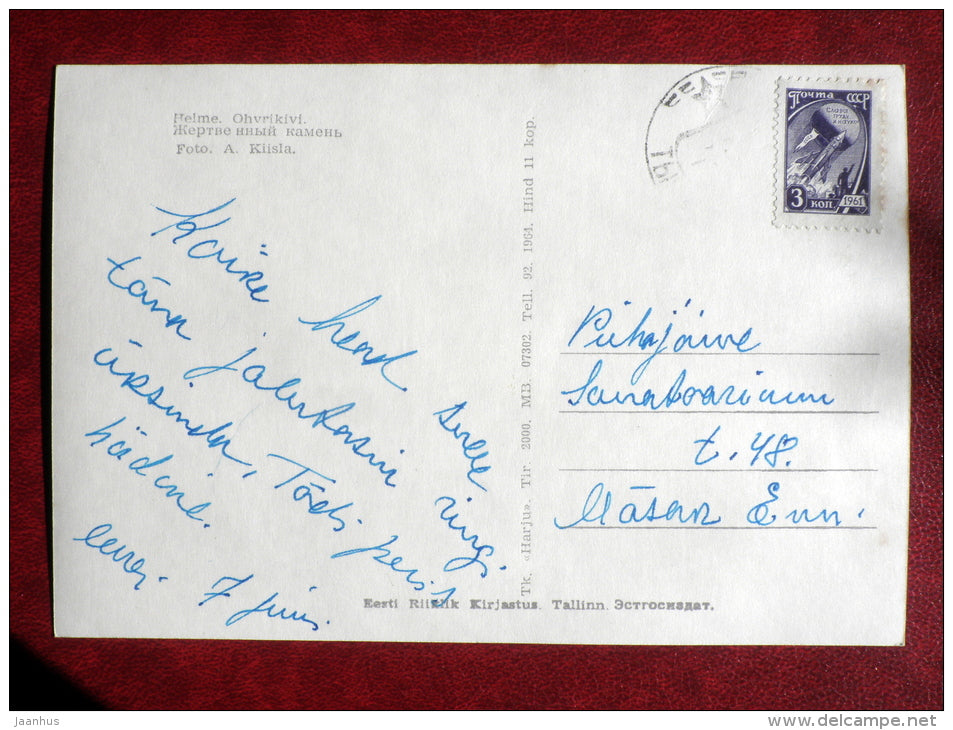 Helme. Ohvrikivi.
Жертвенный камень
Foto. A. Kiisla.
Kõike head sulle
täna jalutasin ringi
üksinda, Tõesti päris
hädine.
7 juuni.
Tk. «Harju». Tir. 2000. MB. 07302. Tell. 92. 1964. Hind 11 kop.
Eesti Riiklik Kirjastus. Tallinn. Эстгосиздат.
ПОЧТА СССР
СЛАВА
ТРУДУ
И НАУКЕ
3 КОП
1961
Pühajärve
Sanatoorium
t. 48.
Enn.
jaanhus
www.delcampe.net